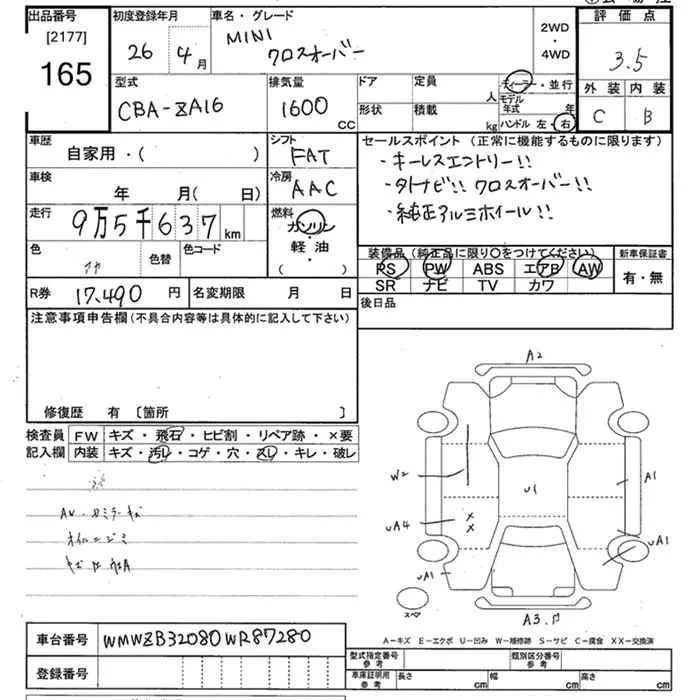 出品番号
[2177]
165
初度登録年月
26 4月
車名・グレード
MINI
クロスオーバー
2WD
・
4WD
評価点
3.5
外装 内装
C B
型式
CBA-ZA16
排気量
1600
CC
ドア 定員
人
形状 積載
kg
ディーラー・並行
モデル
年式 年
ハンドル 左・右
車歴
自家用・( )
シフト
FAT
車検
年 月( 日)
冷房
AAC
走行
9万5千637km
燃料
ガソリン
・
軽・油
( )
色
色替
色コード
R券 17,490 円
名変期限 月 日
セールスポイント (正常に機能するものに限ります)
・キーレスエントリー!!
・タトナビ!! クロスオーバー!!
・純正アルミホイール!!
装備品(純正品に限り○をつけてください)
PS PW ABS エアB AW
SR ナビ TV カワ
新車保証書
有・無
後日品
注意事項申告欄(不具合内容等は具体的に記入して下さい)
修復歴 有 〔箇所 〕
検査員
記入欄
FW キズ・飛石・ヒビ割・リペア跡・×要
内装 キズ・汚レ・コゲ・穴・スレ・キレ・破レ
A2
W2
A1
U1
UA4
×
×
UA1
UA1
スペア
A3.
A-キズ E-エクボ U-凹み W-補修跡 S-サビ C-腐食 XX-交換済
車台番号 WMWZB32080WR87280
登録番号
型式指定番号
参考
類別区分番号
参考
車庫証明用
参考
長さ cm
幅 cm
高さ cm